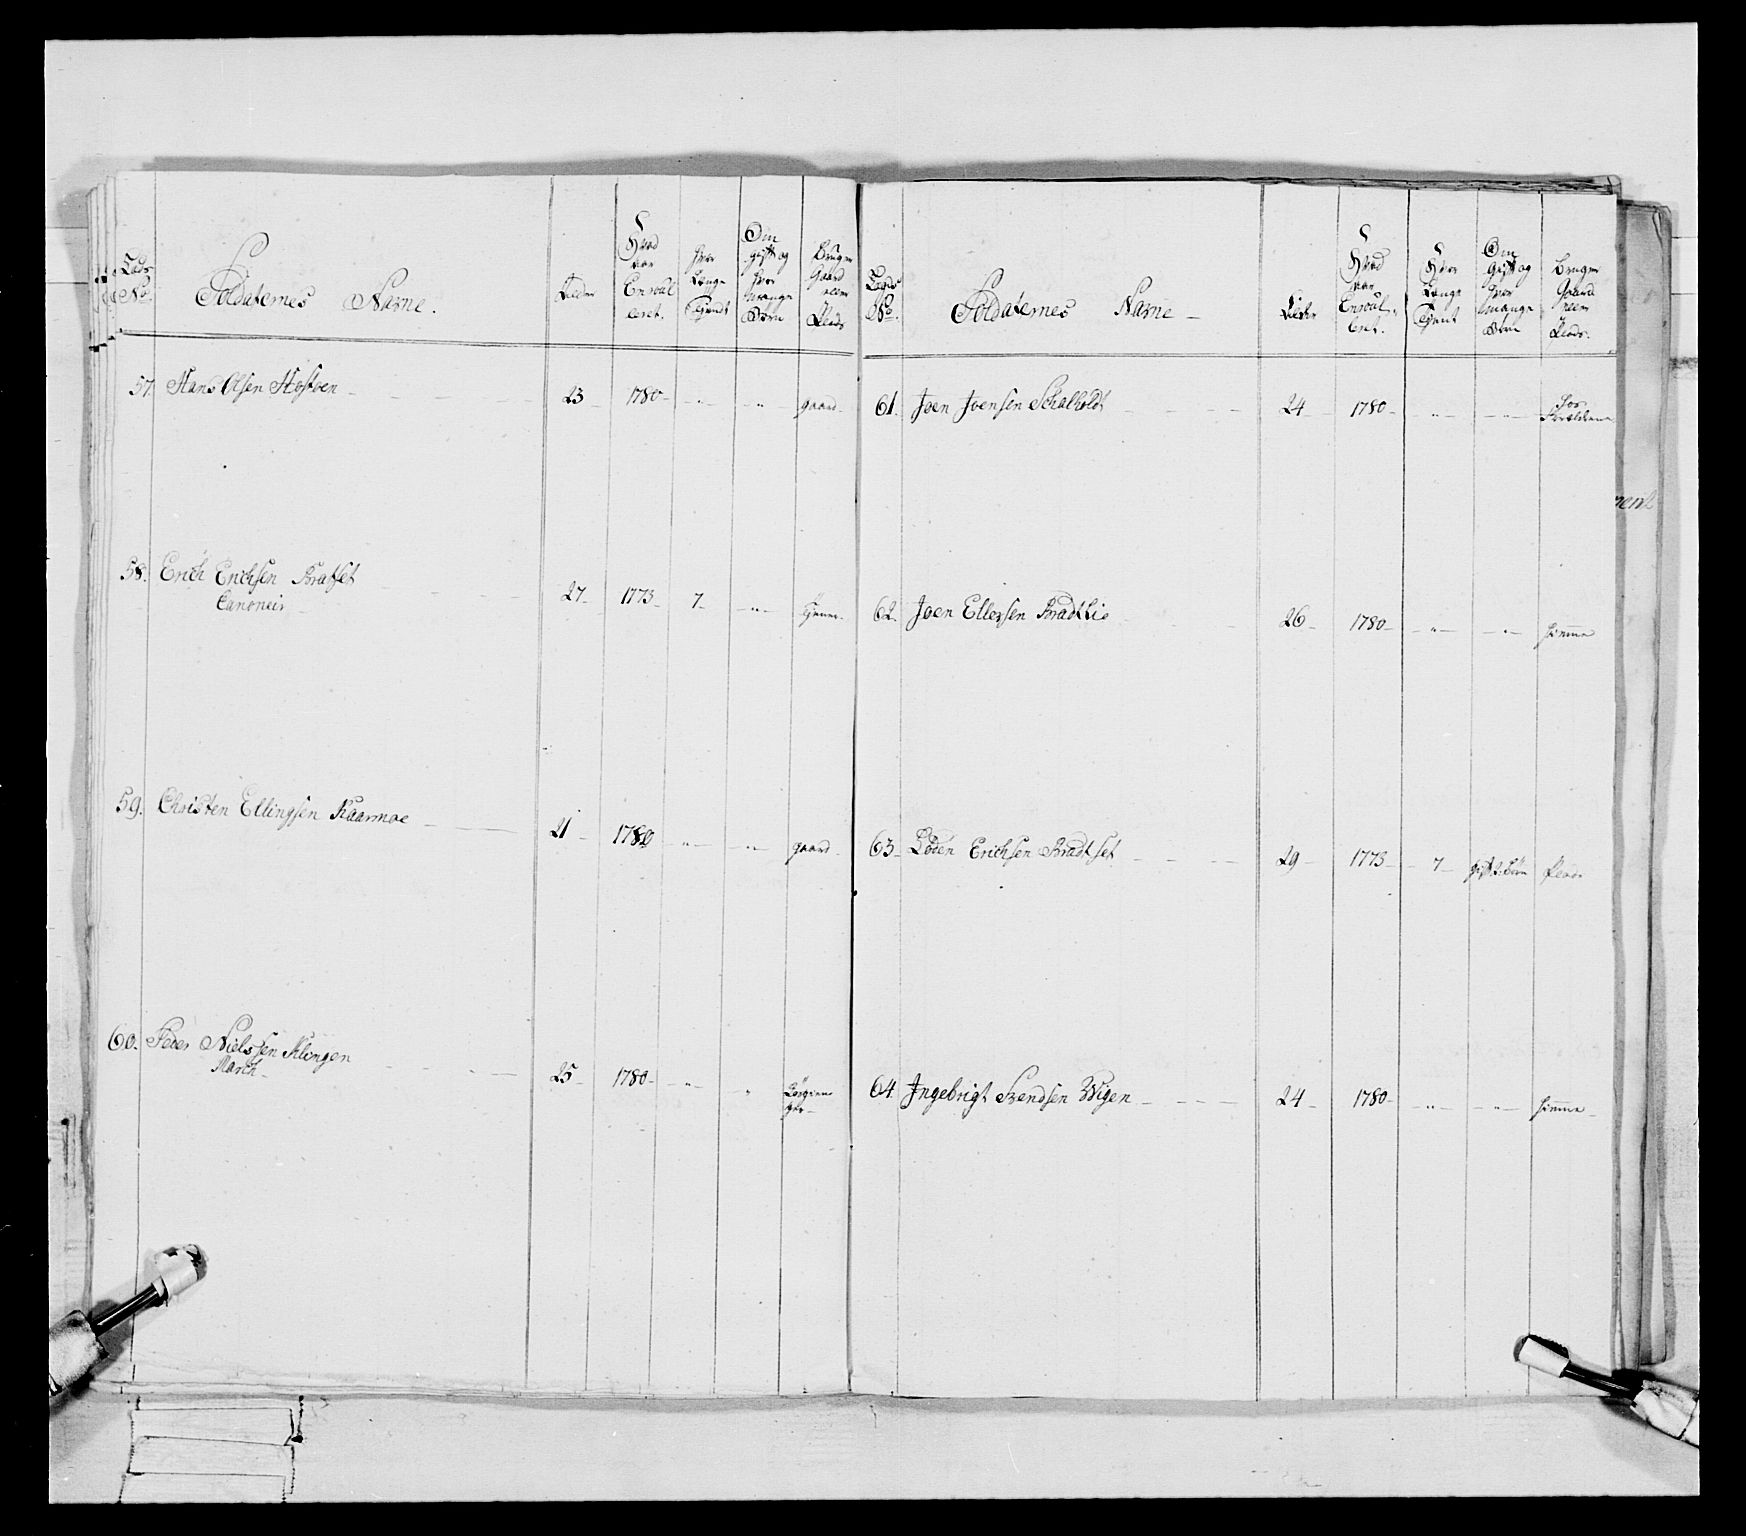 Lads
No.
Soldaternes Navne.
Alder
Hvad
aar
Enroul
leret.
Hvor
Længe
Tient
Om
gift og
hvor
mange
Børn
Bruger
Gaard
eller
Plads
57. Hans Olsen Hostoen 23 1780 " " gaard
58. Erich Erichsen Bratset
Canoneir 27 1773 7 " Tjener
59. Christen Ellingsen Kaarmoe 21 1780 " " gaard
60. Peder Nielssen Klingen
March 25 1780 " "
Lads
No.
Soldaternes Navne
Alder
Hvad
aar
Enroul-
leret.
Hvor
Længe
Tient
Om
Gift og
hvor
mange
Børn
Bruger
Gaard
eller
Plads.
61. Joen Joensen Schalholdt 24 1780 " " hos
Forældrene
62. Joen Ellevsen Bradtlie 26 1780 " " hiemme
63. Loden Erichsen Bradtset 29 1773 7 gift 2 Børn Plads
64 Ingebrigt Svendsen Wigen 24 1780 " " hiemme